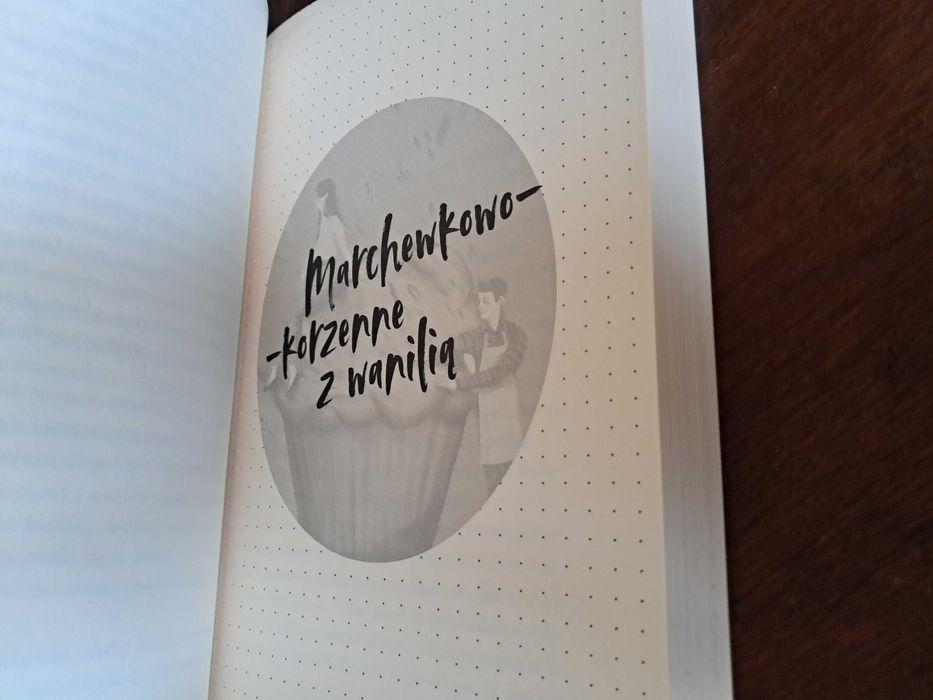 Marchewkowo-
-korzenne
z wanilią